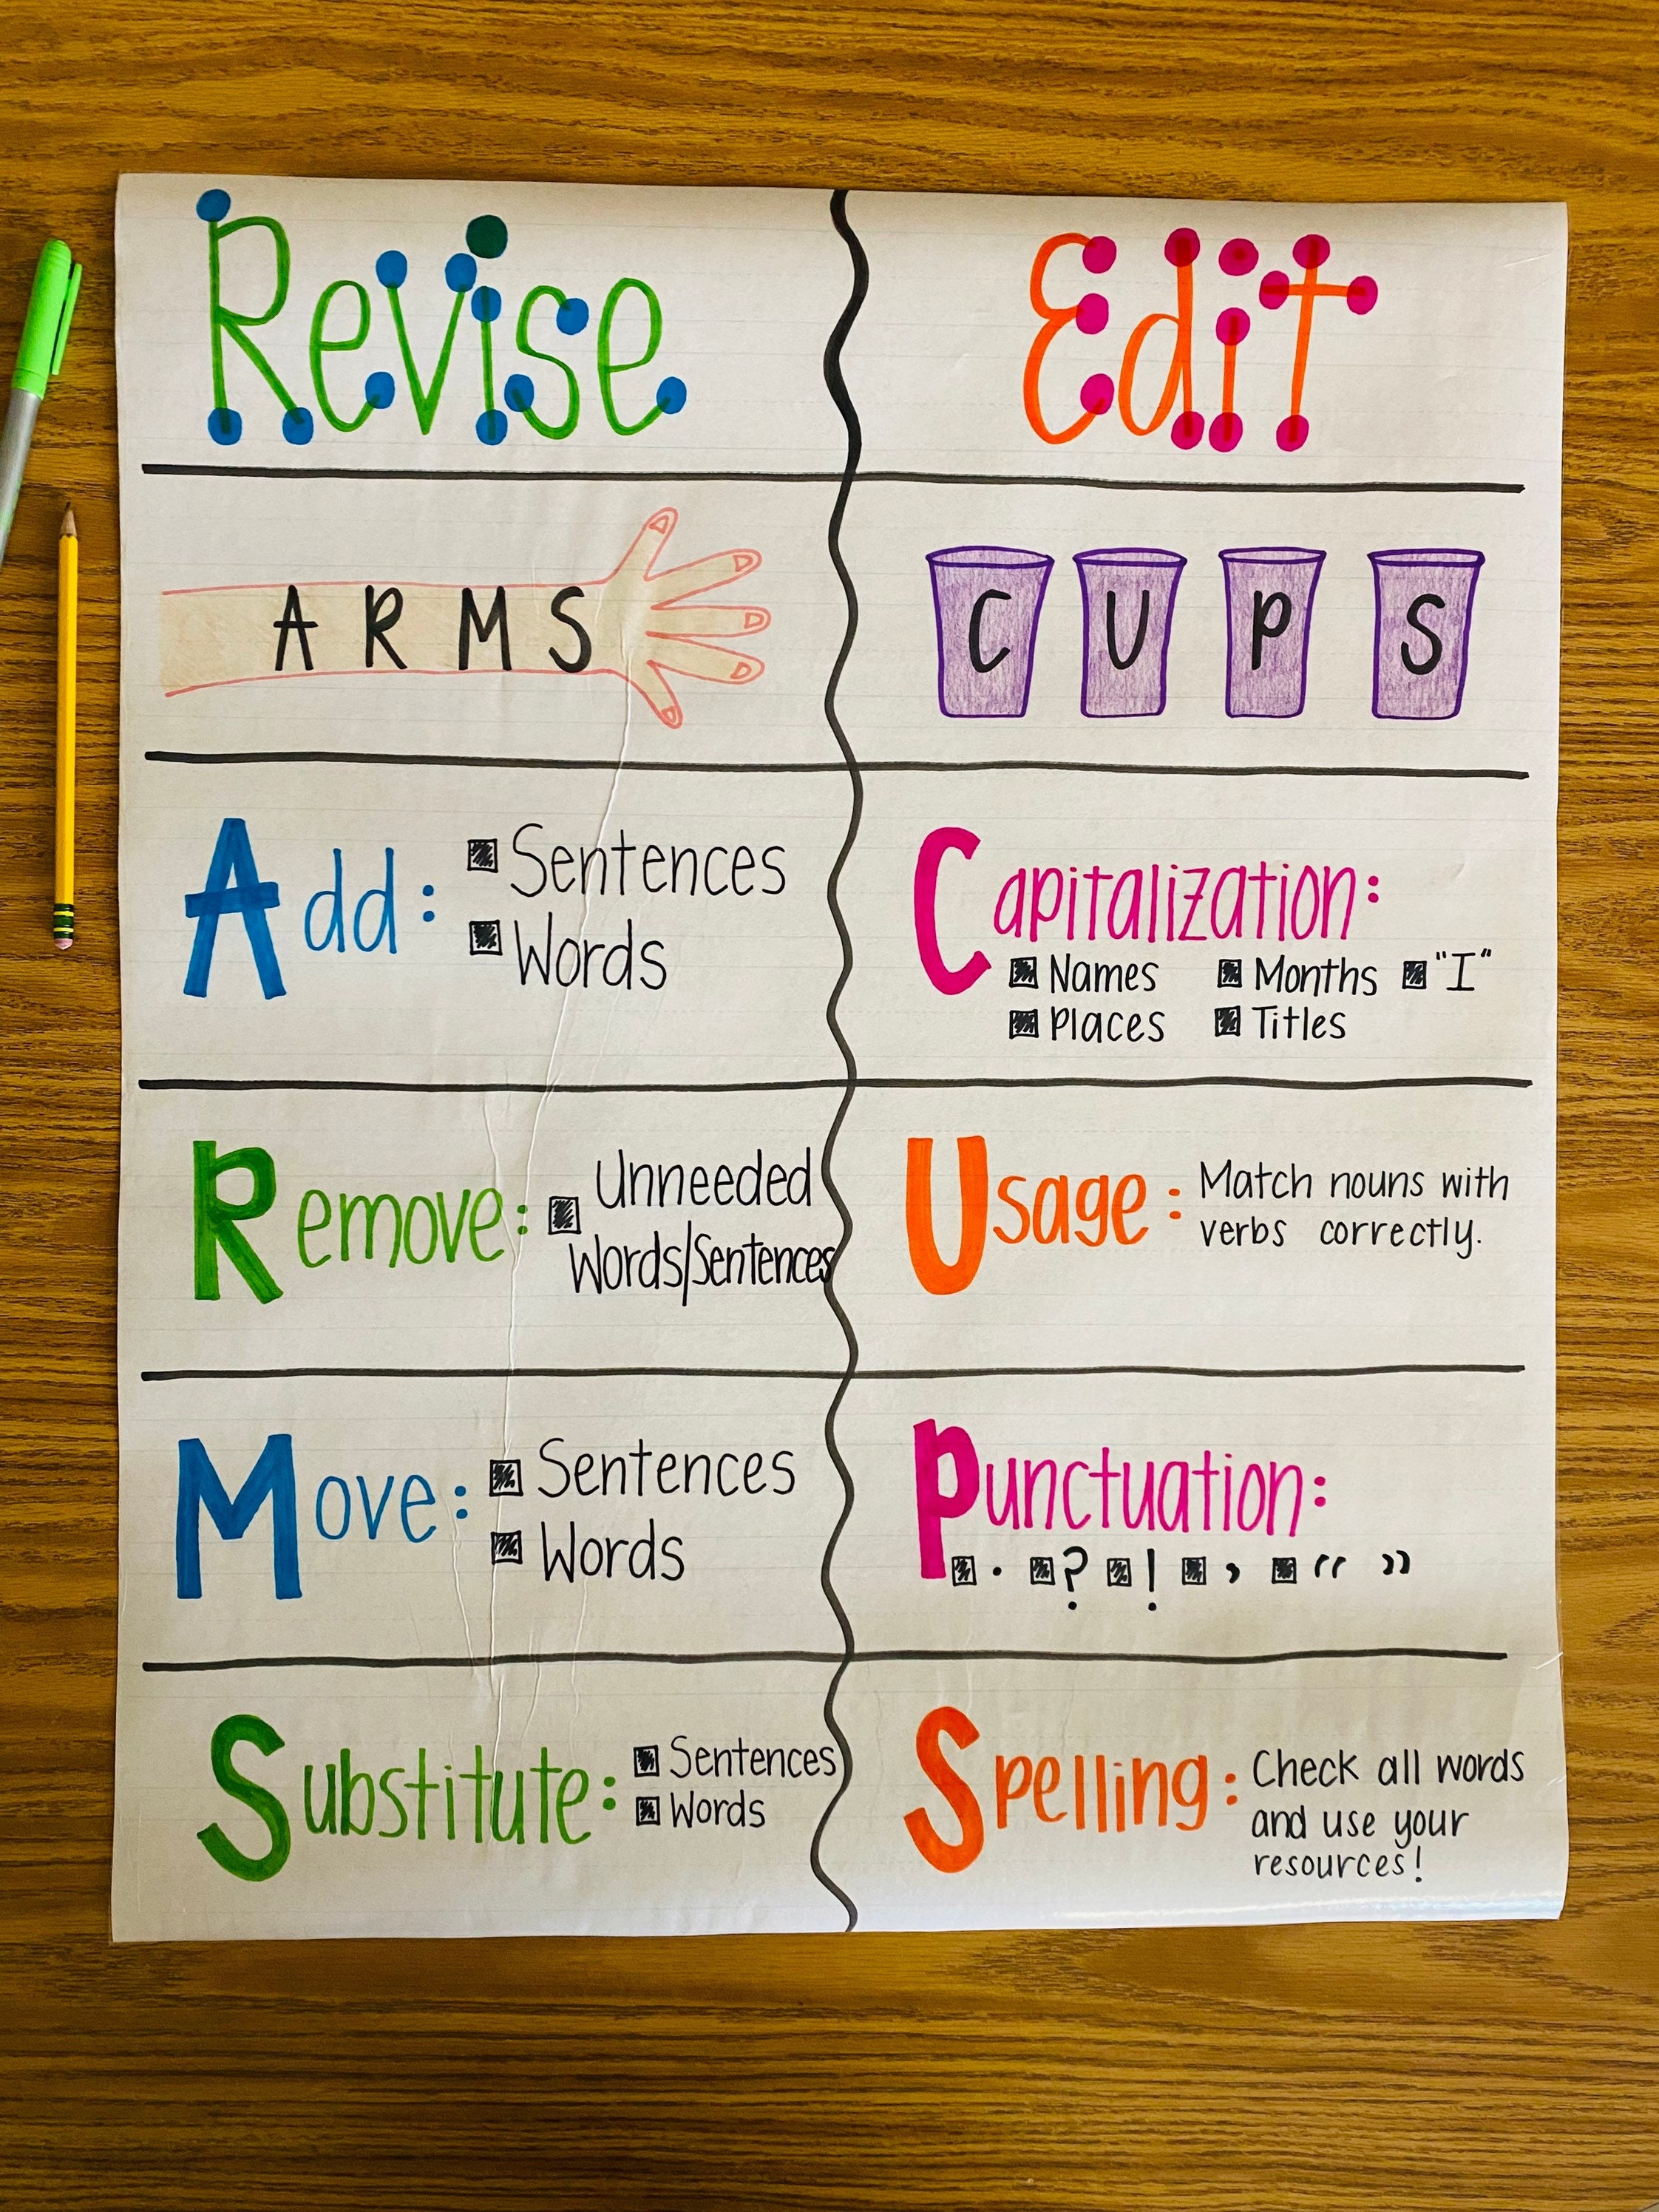 Revise
Edit
A R M S
C U P S
Add:
▪ Sentences
▪ Words
Capitalization:
▪ Names ▪ Months ▪ "I"
▪ Places ▪ Titles
Remove:
▪ Unneeded
Words/Sentences
Usage: Match nouns with
verbs correctly.
Move:
▪ Sentences
▪ Words
Punctuation:
▪ . ▪ ? ▪ ! ▪ , ▪ “ ”
Substitute:
▪ Sentences
▪ Words
Spelling: Check all words
and use your
resources!